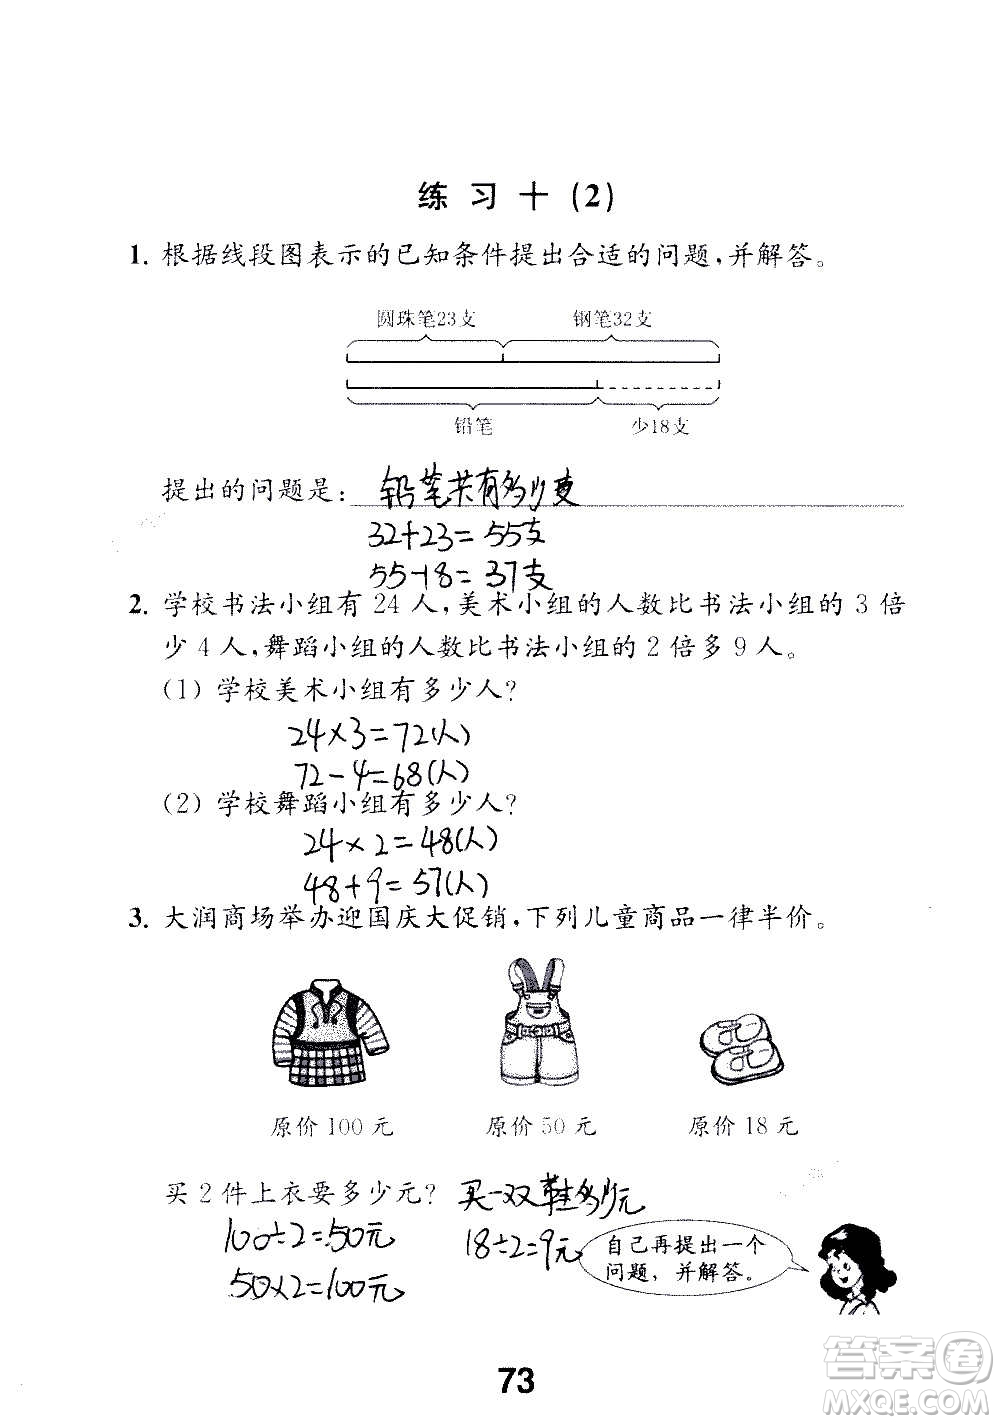 练习十(2)
1. 根据线段图表示的已知条件提出合适的问题，并解答。
圆珠笔23支 钢笔32支
铅笔 少18支
提出的问题是：铅笔共有多少支
32+23=55支
55-18=37支
2. 学校书法小组有 24 人，美术小组的人数比书法小组的 3 倍
少 4 人，舞蹈小组的人数比书法小组的 2 倍多 9 人。
(1) 学校美术小组有多少人？
24×3=72(人)
72-4=68(人)
(2) 学校舞蹈小组有多少人？
24×2=48(人)
48+9=57(人)
3. 大润商场举办迎国庆大促销，下列儿童商品一律半价。
原价 100 元 原价 50 元 原价 18 元
买 2 件上衣要多少元？ 买一双鞋多少元
100÷2=50元 18÷2=9元
50×2=100元
自己再提出一个
问题，并解答。
73
答案圈
MXQE.COM